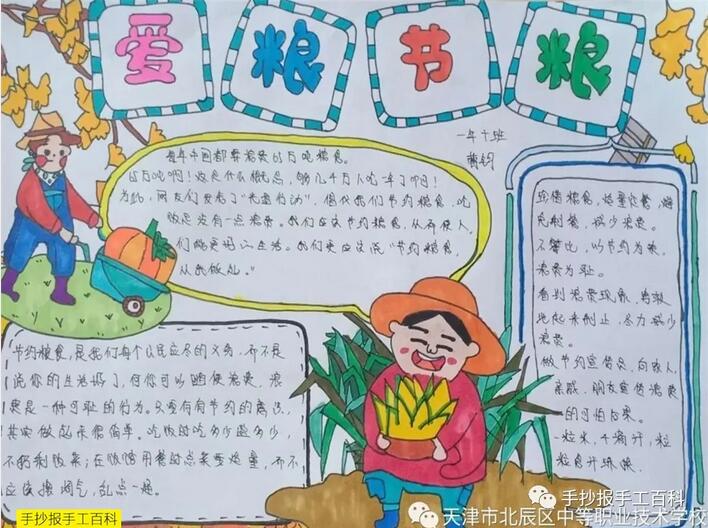 爱粮节粮
一年十班
每年中国都要浪费65万吨粮食。
65万吨啊!这是什么概念,够几千万人吃一年了啊!
为此,网友们发起了“光盘行动”,倡议我们节约粮食,吃
饭是没有一点浪费。我们应该节约粮食,从而使人
们能更好的生活。我们更应该说“节约粮食,
从我做起。”
珍惜粮食,适量定餐,避
免剩餐,减少浪费。
不攀比,以节约为荣,
浪费为耻。
看到浪费现象,勇敢
地起来制止,尽力减少
浪费。
做节约宣传员,向家人、
亲戚、朋友宣传浪费
的可怕后果。
一粒米,千滴汗,粒
粒粮食汗珠换
节约粮食,是我们每个公民应尽的义务,而不是
说你的生活好了,你就可以随便浪费,浪
费是一种可耻的行为。只要有节约的意识,
其实做起来很简单。吃饭时吃多少盛多少,
不扔剩饭菜;在饭馆用餐时点菜要适量,而不
应该摆阔气,乱点一通。
手抄报手工百科
手抄报手工百科
天津市北辰区中等职业技术学校